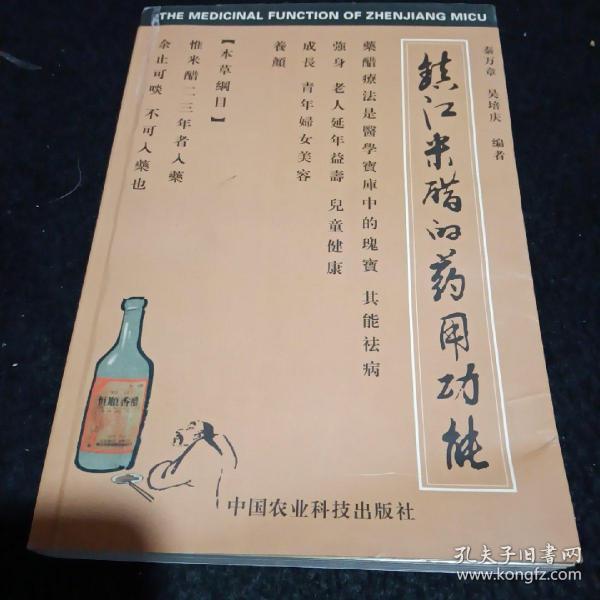 THE MEDICINAL FUNCTION OF ZHENJIANG MICU
秦万章 吴培庆 编者
鎮江米醋的药用功能
藥醋療法是醫學寶庫中的瑰寶 其能祛病
強身 老人延年益壽 兒童健康
成長 青年婦女美容
養顔
【本草綱目】
惟米醋二三年者入藥
余止可啖 不可入藥也
恒順香醋
中国农业科技出版社
孔夫子旧书网
www.kongfz.com